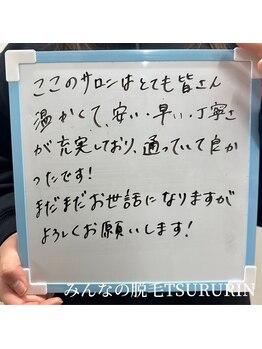 ここのサロンはとても皆さん
温かくて、安い・早い・丁寧さ
が充実しており、通っていて良か
ったです！
まだまだお世話になりますが
よろしくお願いします！
みんなの脱毛TSURURIN